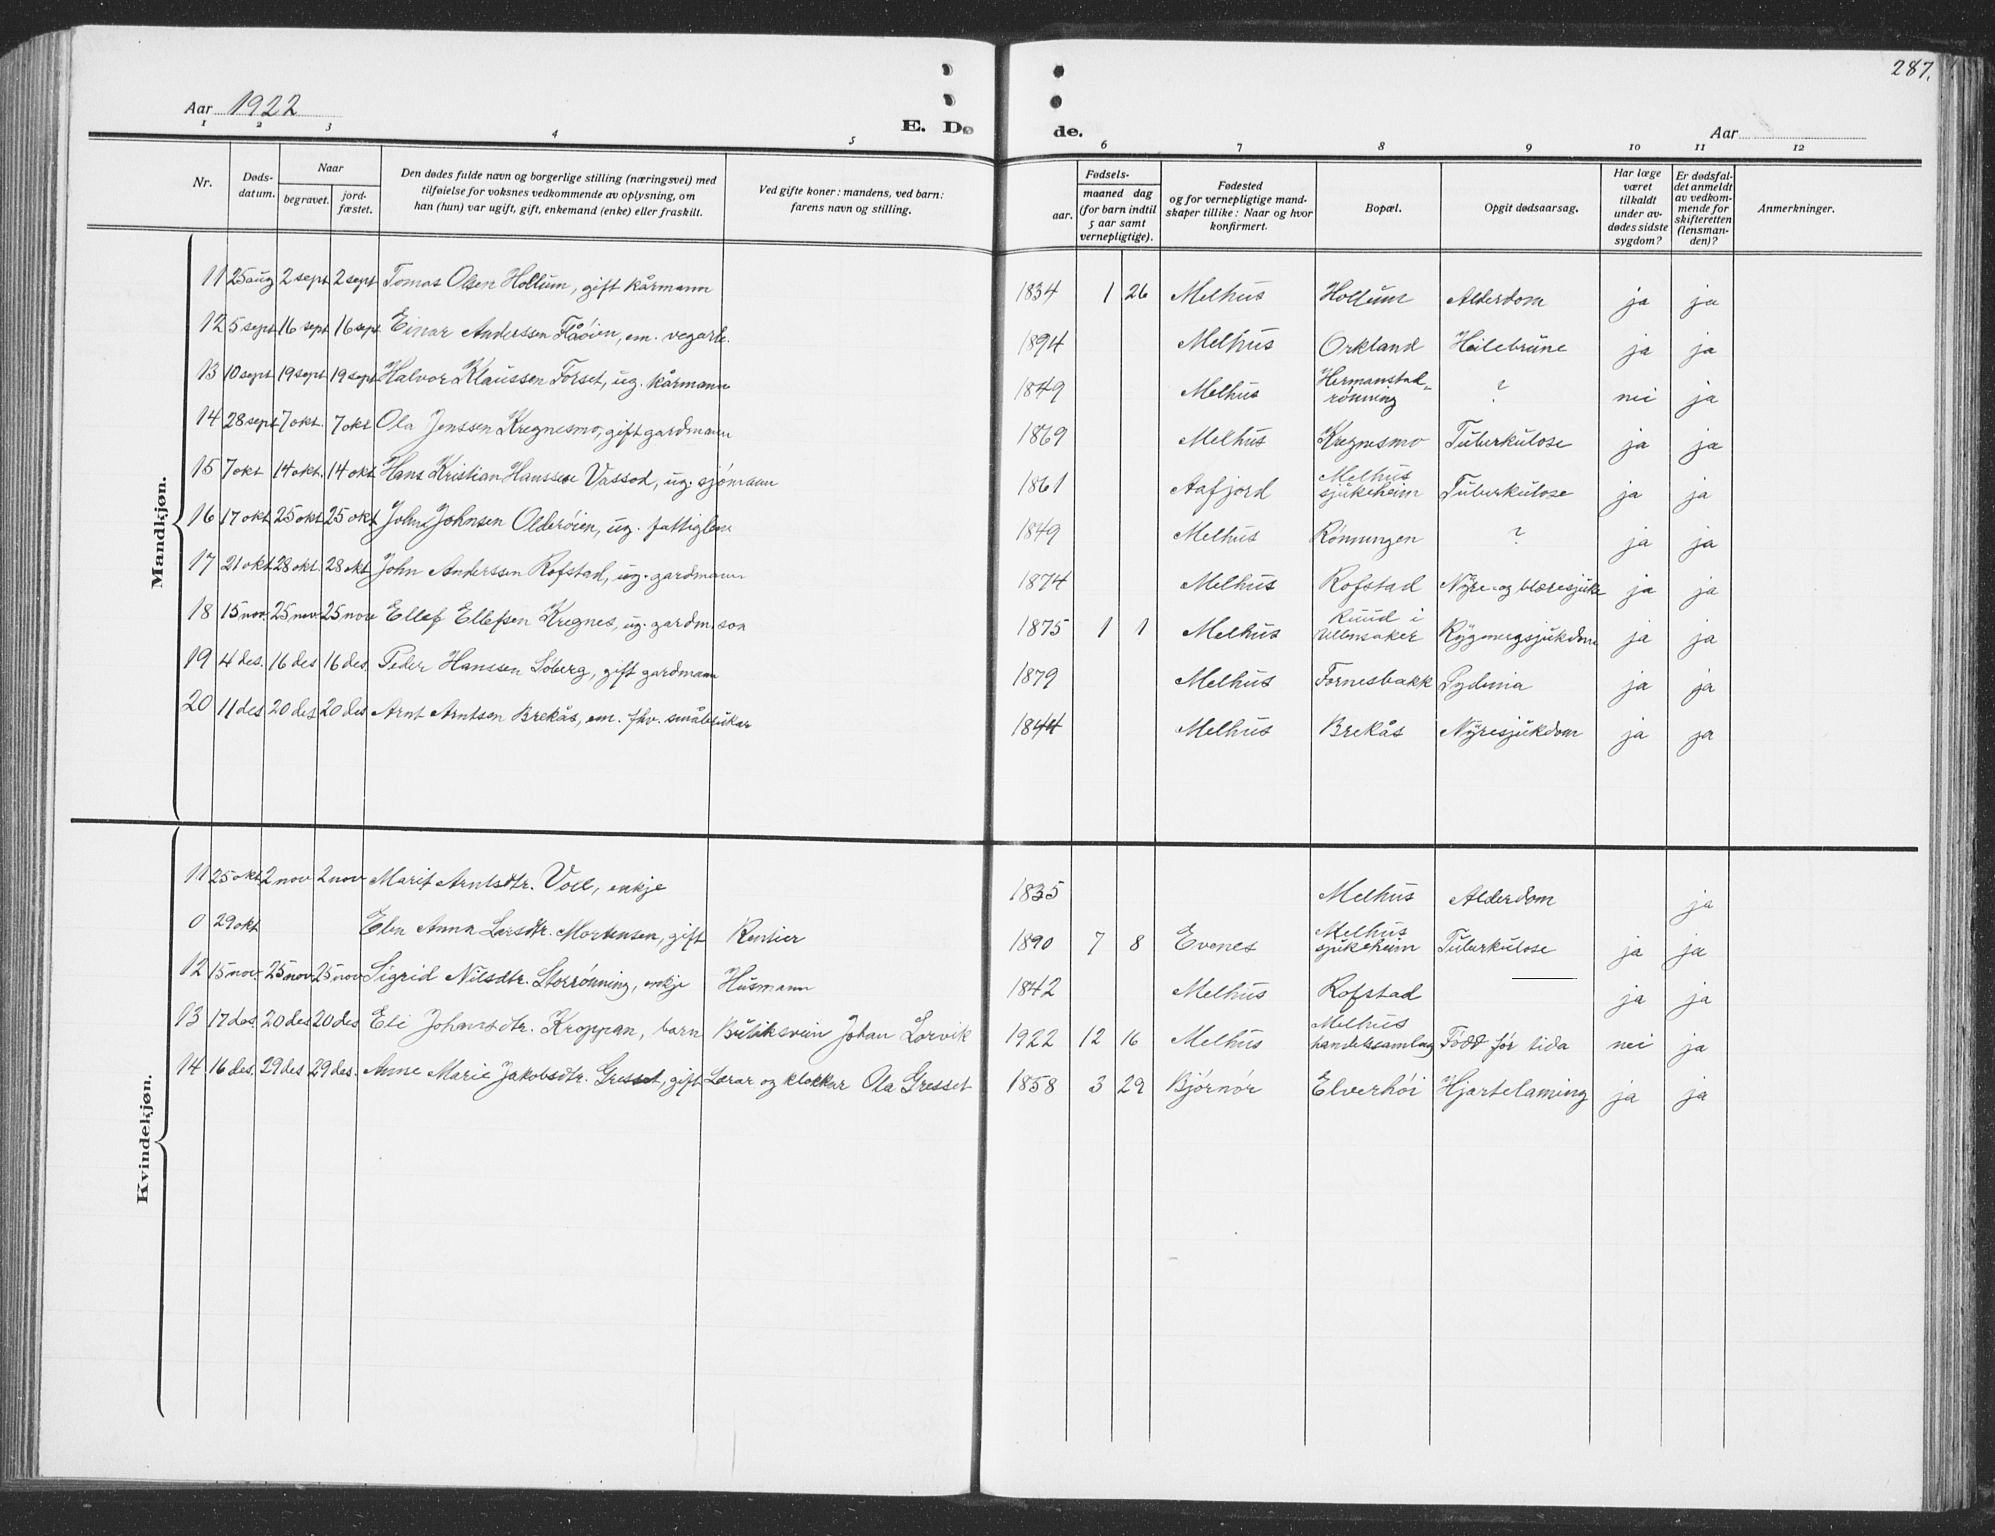 287.
Aar 1922
E. Dø de.
Aar
1 2 3 4 5 6 7 8 9 10 11 12
Nr.
Døds-
datum.
Naar
begravet.
jord-
fæstet.
Den dødes fulde navn og borgerlige stilling (næringsvei) med
tilføielse for voksnes vedkommende av oplysning, om
han (hun) var ugift, gift, enkemand (enke) eller fraskilt.
Ved gifte koner: mandens, ved barn:
farens navn og stilling.
Fødsels-
aar.
maaned dag
(for barn indtil
5 aar samt
vernepligtige).
Fødested
og for vernepligtige mand-
skaper tillike: Naar og hvor
konfirmert.
Bopæl.
Opgit dødsaarsag.
Har læge
været
tilkaldt
under av-
dødes sidste
sygdom?
Er dødsfal-
det anmeldt
av vedkom-
mende for
skifteretten
(lensman-
den)?
Anmerkninger.
Mandkjøn.
11 25 aug 2 sept 2 sept Tomas Olsen Hollum, gift kårmann 1834 1 26 Melhus Hollum Alderdom ja ja
12 5 sept 16 sept 16 sept Einar Anderssen Flåøien, em. vegarb. 1894 Melhus Orkland Heilebrune ja ja
13 10 sept 19 sept 19 sept Halvor Klaussen Forset, ug. kårmann 1849 Melhus Hermanstad-
rønning ? nei ja
14 28 sept 7 okt. 7 okt Ola Jenssen Kregnesmo, gift gardmann 1869 Melhus Kregnesmo Tuberkulose ja ja
15 7 okt 14 okt. 14 okt Hans Kristian Hanssen Vassod, ug. sjømann 1861 Aafjord Melhus
sjukeheim Tuberkulose ja ja
16 17 okt 25 okt 25 okt John Johnsen Olderøien, ug. fattiglem 1849 Melhus Rønningen ? ja ja
17 21 okt 28 okt. 28 okt John Anderssen Rofstad, ug. gardmann 1874 Melhus Rofstad Nyre- og blæresjuke ja ja
18 15 nov. 25 nov 25 nov Ellef Ellefsen Kregnes, ug. gardm. son 1875 1 1 Melhus Ruud i
Ullensaker Rygmergsjukdom ja ja
19 4 des. 16 des 16 des Peder Hanssen Søberg, gift gardmann 1879 Melhus Fornesbakk Pydmia ja ja
20 11 des 20 des 20 des Arnt Arntsen Brekås, em. fhv. småbrukar 1844 Melhus Brekås Nyresjukdom ja ja
Kvindekjøn.
11 25 okt 2 nov 2 nov Marit Arntsdtr. Voll, enkje 1835 Melhus Alderdom ja
0 29 okt Elen Anna Larsdtr. Mortensen, gift Rentier 1890 7 8 Evenes Melhus
sjukeheim Tuberkulose ja ja
12 15 nov. 25 nov 25 nov Sigrid Nilsdtr. Storrønning, enkje Husmann 1842 Melhus Rofstad — ja ja
13 17 des. 20 des 20 des Eli Johansdtr. Kroppan, barn Butiksvein Johan Lorvik 1922 12 16 Melhus Melhus
handelssamlag Fødd før tida nei ja
14 16 des. 29 des 29 des. Anne Marie Jakobsdtr. Gresset, gift Lærar og klokkar Ola Gresset 1858 3 29 Bjørnør Elverhøi Hjartelaming ja ja